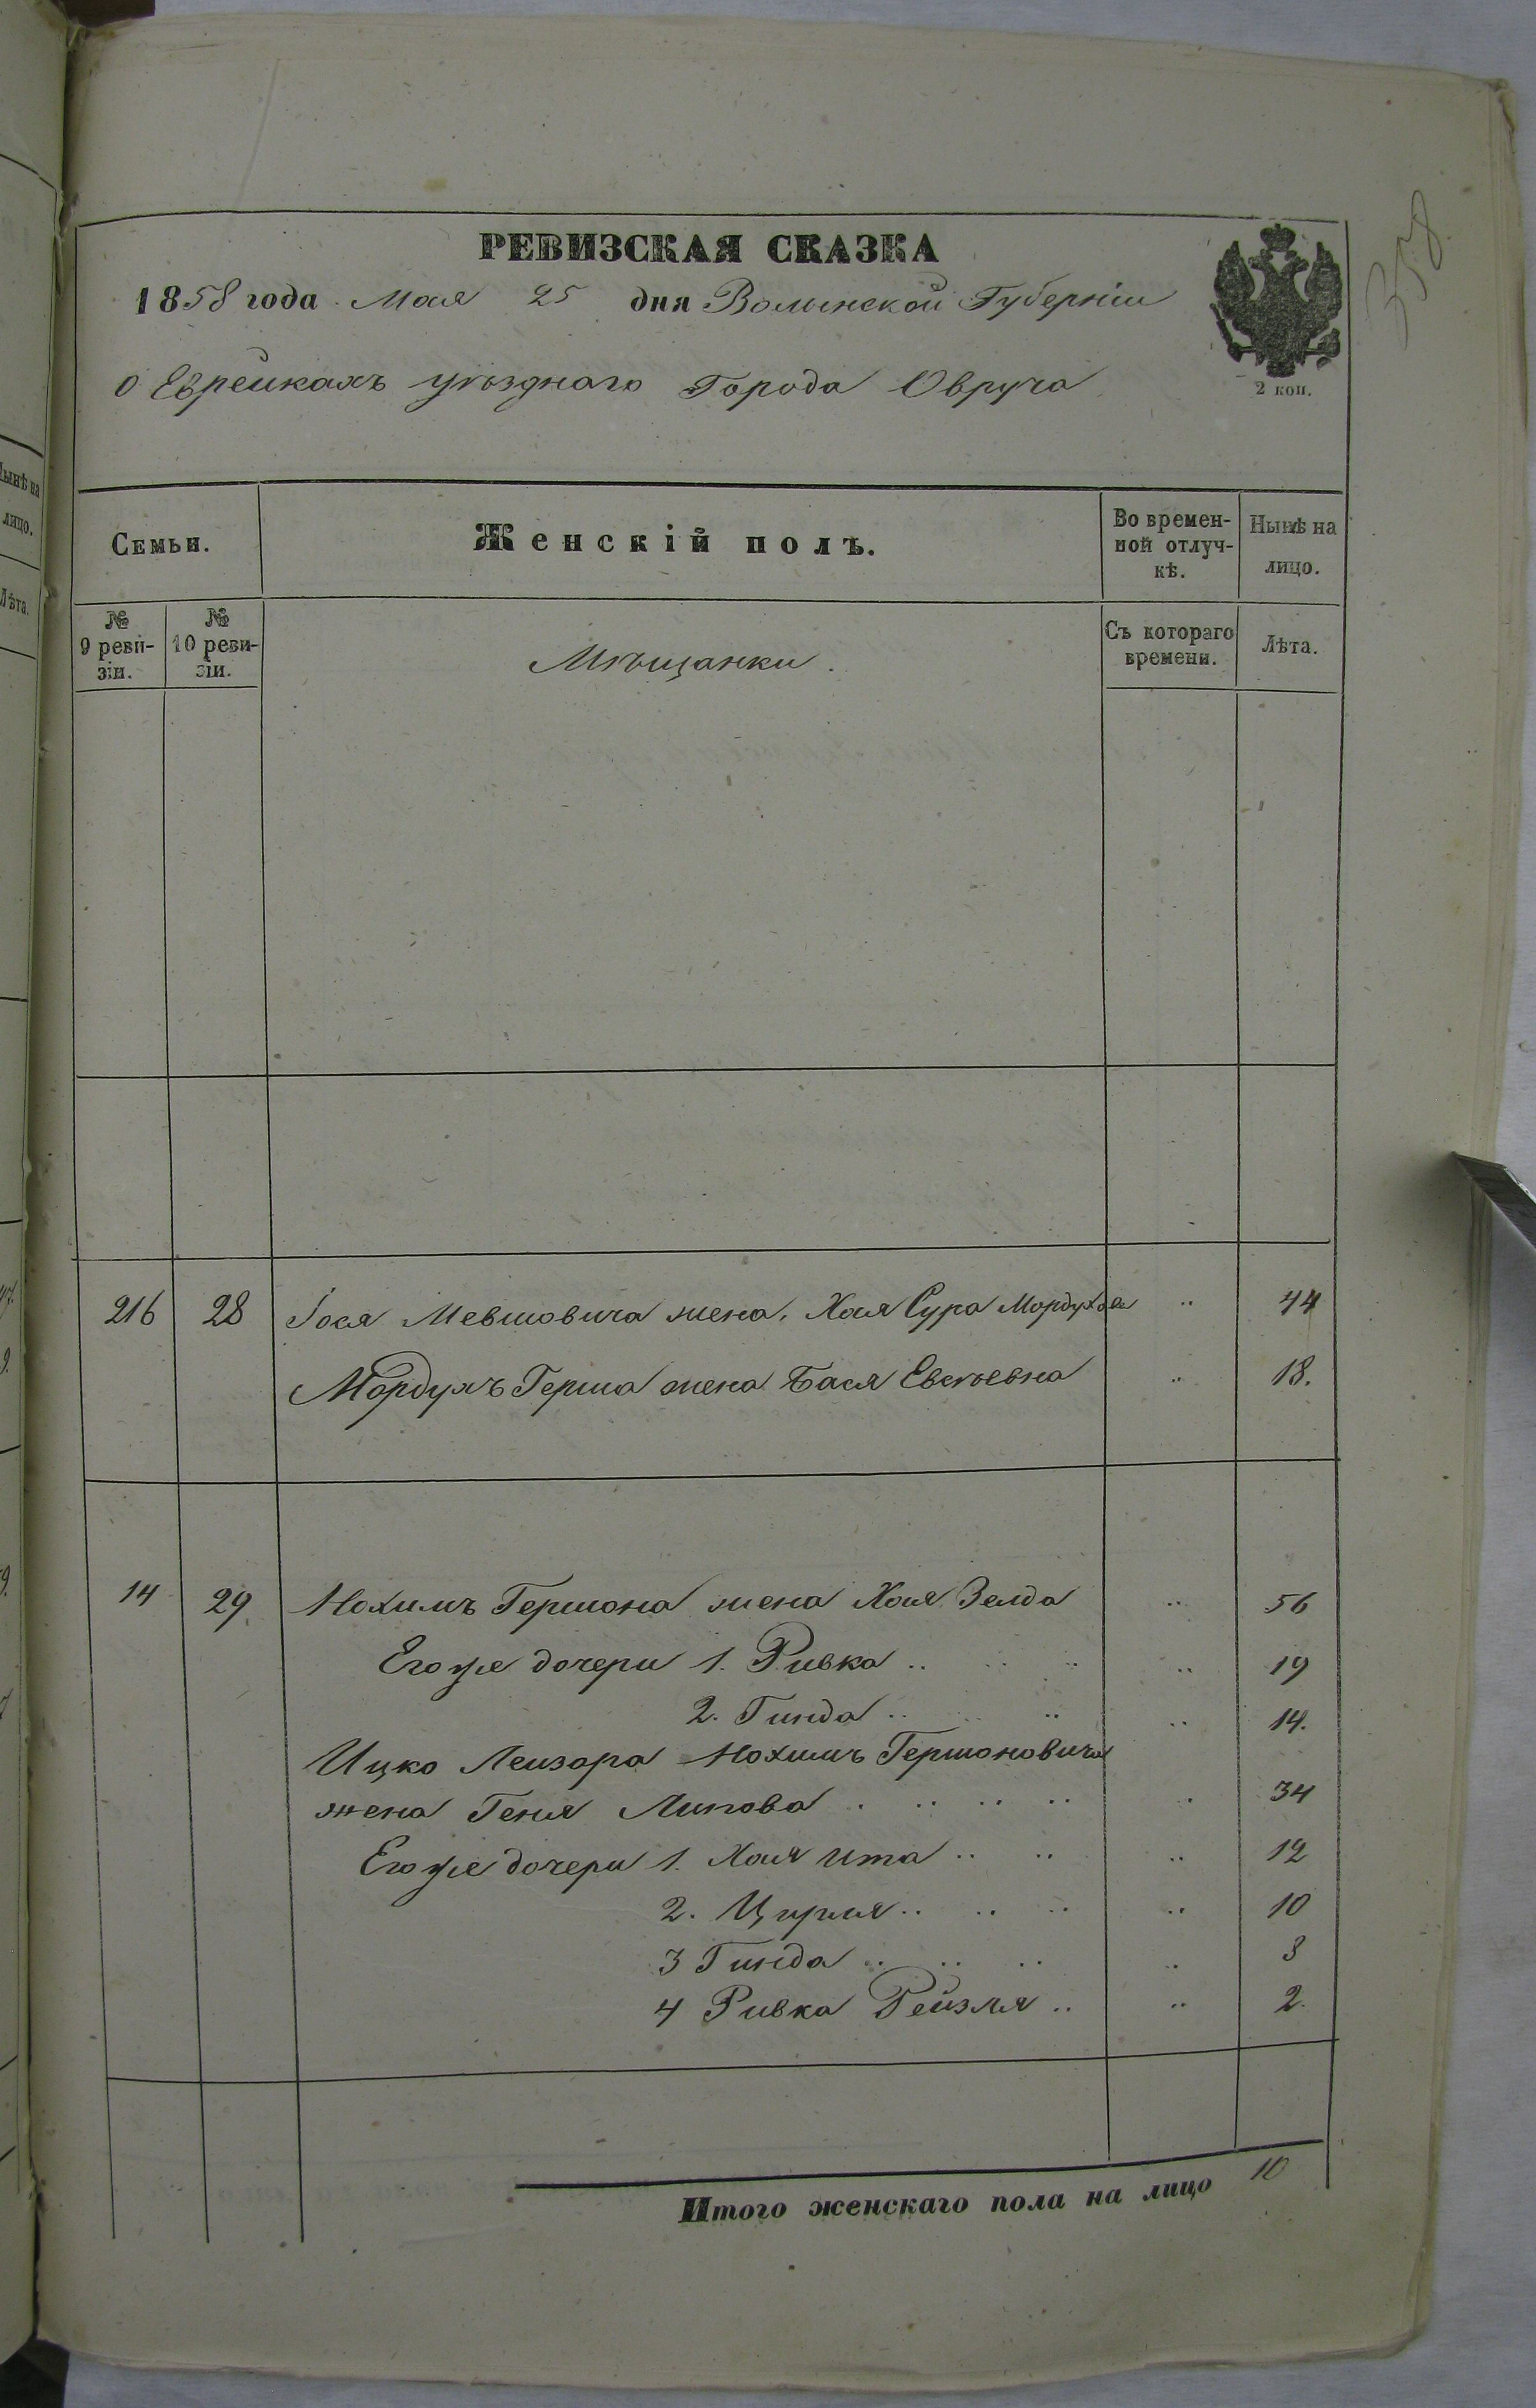 358.
РЕВИЗСКАЯ СКАЗКА
1858 года Мая 25 дня Волынской Губерніи
2 коп.
о Еврейкахъ уѣзднаго Города Овруча
Семьи. Женскій полъ. Во временной отлучкѣ. Нынѣ на лицо.
№ 9 ревизіи. № 10 ревизіи. Мѣщанки. Съ котораго времени. Лѣта.
216 28 Іося Мевшовича жена, Хая Сура Мордухова " 44
Мордухъ Герша жена Бася Евсѣевна " 18.
14 29 Нохимъ Гершона жена Хая Зелда " 56
Его же дочери 1. Ривка " 19
2. Гинда " 14.
Ицко Лейзора Нохимъ Гершоновича
жена Геня Липова " 34
Его же дочери 1. Хая Ита " 12
2. Цирля " 10
3 Гинда " 8
4 Ривка Рейзля " 2.
Итого женскаго пола на лицо 10
Нынѣ на
лицо.
Лѣта.